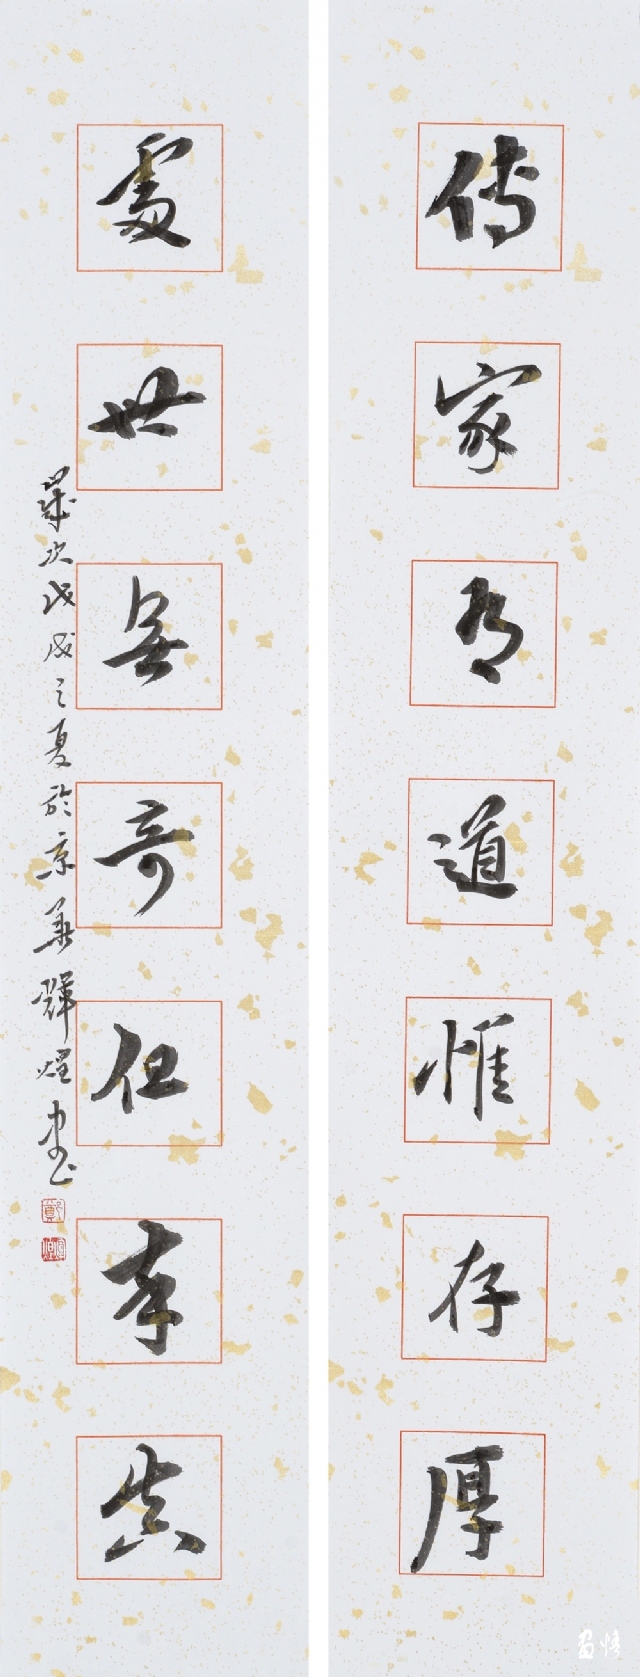 傳家有道惟存厚
處世無奇但率真
歲次戊戌之夏於京華輝煌書